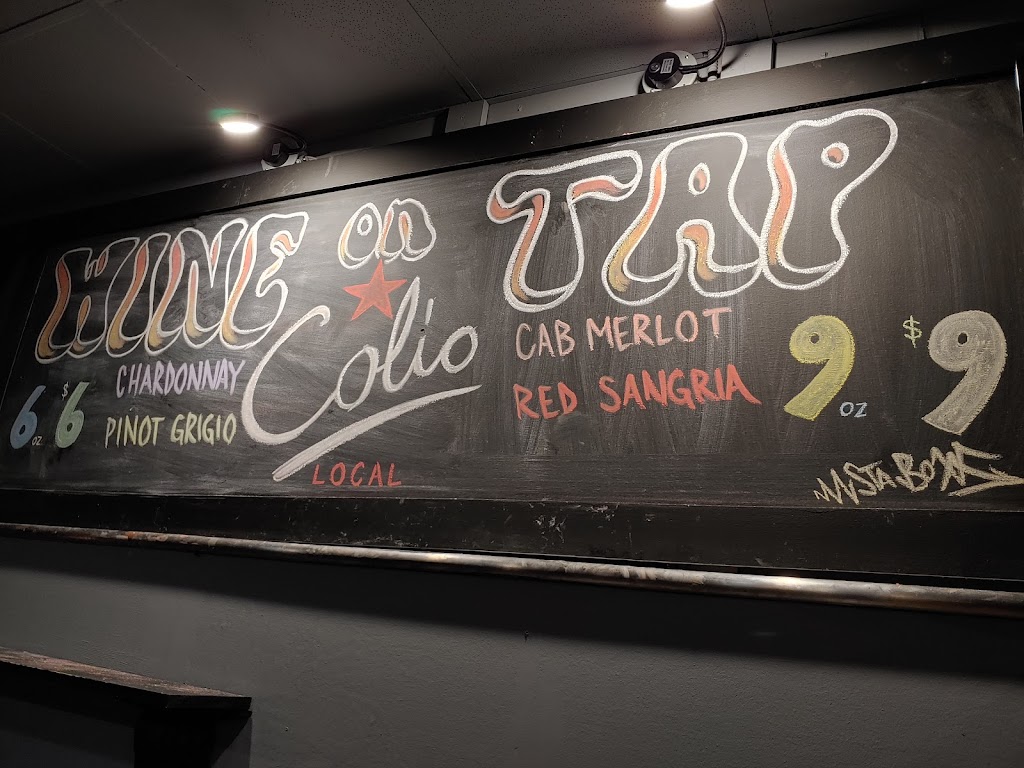 WINE on TAP
Colio
LOCAL
6 OZ $6
CHARDONNAY
PINOT GRIGIO
CAB MERLOT
RED SANGRIA
9 OZ $9